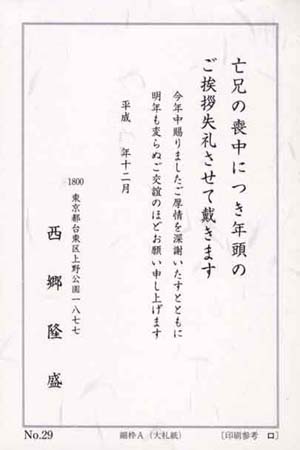 亡兄の喪中につき年頭の
ご挨拶失礼させて戴きます
今年中賜りましたご厚情を深謝いたすとともに
明年も変らぬご交誼のほどお願い申し上げます
平成　年十二月
1800
東京都台東区上野公園一八七七
西郷隆盛
No.29
細枠A（大礼紙）
〔印刷参考　ロ〕